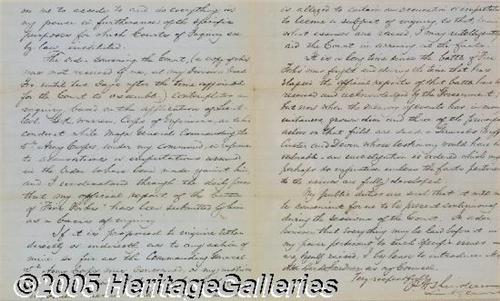 on me to accede to and is everything in
my power in furtherance of the specific
purposes for which Courts of Inquiry are
by law instituted.
The order convening the Court, (a copy of which
was not received by me, at my Division Head
Qrs until two days after the time appointed
for the Court to assemble) contemplates an
inquiry based on the application of Lieut.
Col. G. K. Warren, Corps of Engineers, as to his
conduct while Major General Commanding the
5th Army Corps under my command, in reference
to accusations or imputations assumed
in the order to have been made against him
and I understand through the daily press
that my official report of the battle
of Five Forks has been submitted by him
as a basis of inquiry.
If it is proposed to inquire either
directly or indirectly as to any action of
mine so far as the Commanding General
5th Army Corps was concerned, or my motives
is alleged to contain an accusation or imputation
to become a subject of inquiry, so that, knowing
what issues are raised, I may intelligently
aid the Court in arriving at the facts.
It is a long time since the battle of Five
Forks was fought and during the time that has
elapsed the official reports of that battle have been
received and acknowledged by the Government;
but now when the memory of events has in many
instances grown dim and three of the principal
actors on that field are dead &
Custer and Devin whose testimony would have been
valuable an investigation is ordered which might
perhaps do injustice unless the facts pertinent
to the issues are fully developed.
My public duties are such that it will
be inconvenient for me to be present continuously
during the sessions of the Court. In order
however that everything may be laid before it in
my power pertinent to such specific issues as
are legally raised, I beg leave to introduce
as my Counsel.
Very respectfully
© 2005 HeritageGalleries.com